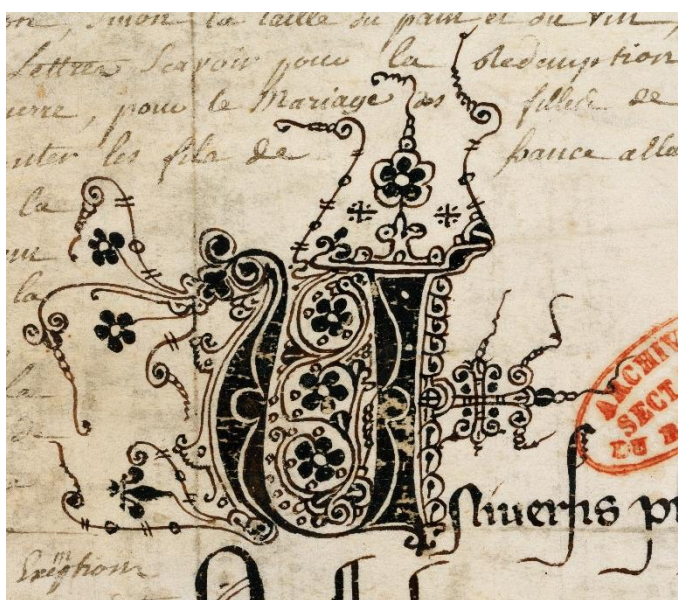 sinon la taille du pain et du vin,
Lettres Scavoir pour la Redemption
uerre, pour le Mariage des filles de
nter les fils de france alla
la
la
la
de
ARCHIV
SECT
DU
Uniuersis p